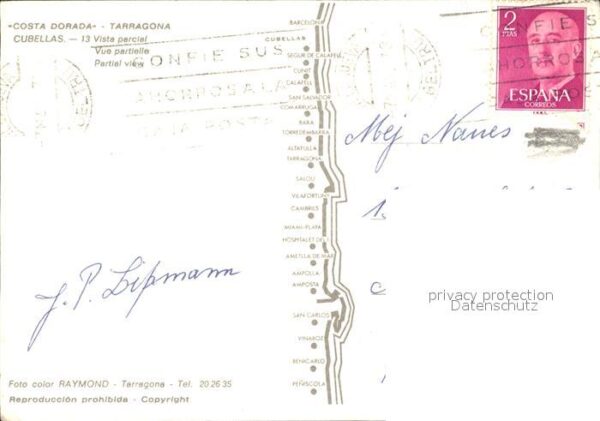 «COSTA DORADA» - TARRAGONA
CUBELLAS. — 13 Vista parcial
Vue partielle
Partial view
CONFIE SUS
AHORROS A LA
CAJA POSTAL
BARCELONA
CUBELLAS
SEGUR DE CALAFELL
CUNIT
CALAFELL
SAN SALVADOR
COMARRUGA
BARA
TORREDEMBARRA
ALTAFULLA
TARRAGONA
SALOU
VILAFORTUNY
CAMBRILS
MIAMI-PLAYA
HOSPITALET DEL I.
AMETLLA DE MAR
AMPOLLA
AMPOSTA
SAN CARLOS
VINAROZ
BENICARLO
PEÑISCOLA
2
PTAS
CONFIE SUS
AHORROS A
ESPAÑA
CORREOS
Mej
J. P. Lipmann
privacy protection
Datenschutz
Foto color RAYMOND - Tarragona - Tel. 20 26 35
Reproducción prohibida - Copyright